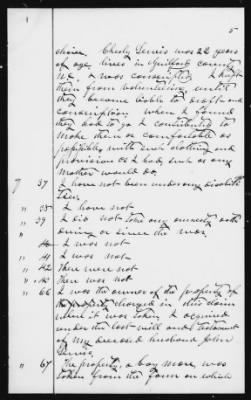 5
choice. Charly Lewis was 22 years
of age, lived in Guilford county
N.C. & was conscripted. I kept
them from volunteering until
they became liable to draft and
conscription when I found
they had to go I contributed to
make them as comfortable as
possible with such clothing and
provision as I had, such as any
mother would do.
" 37 I have not been under any disabili
ties.
" 38 I have not
" 39 I did not take any amnesty oath
during or since the war.
" 40 I was not
" 41 I was not
" 42 There were not
" There was not
" 66 I was the owner of the property
charged in this claim
when it was taken. I acquired
under the last will and testament
of my deceased husband John
Lewis.
" 67 The property, a bay mare, was
taken from the farm on which